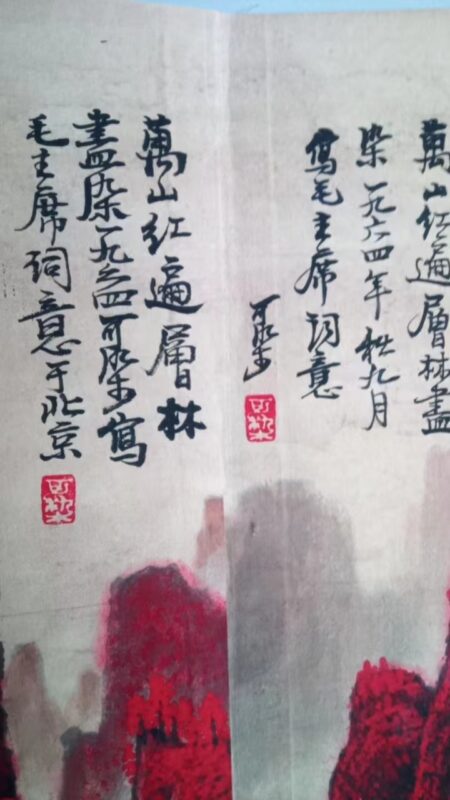 萬山红遍層林盡
染一九六四年秋九月
寫毛主席词意
可染
可染
萬山红遍層林
盡染一九六四可染寫
毛主席词意于北京
可染